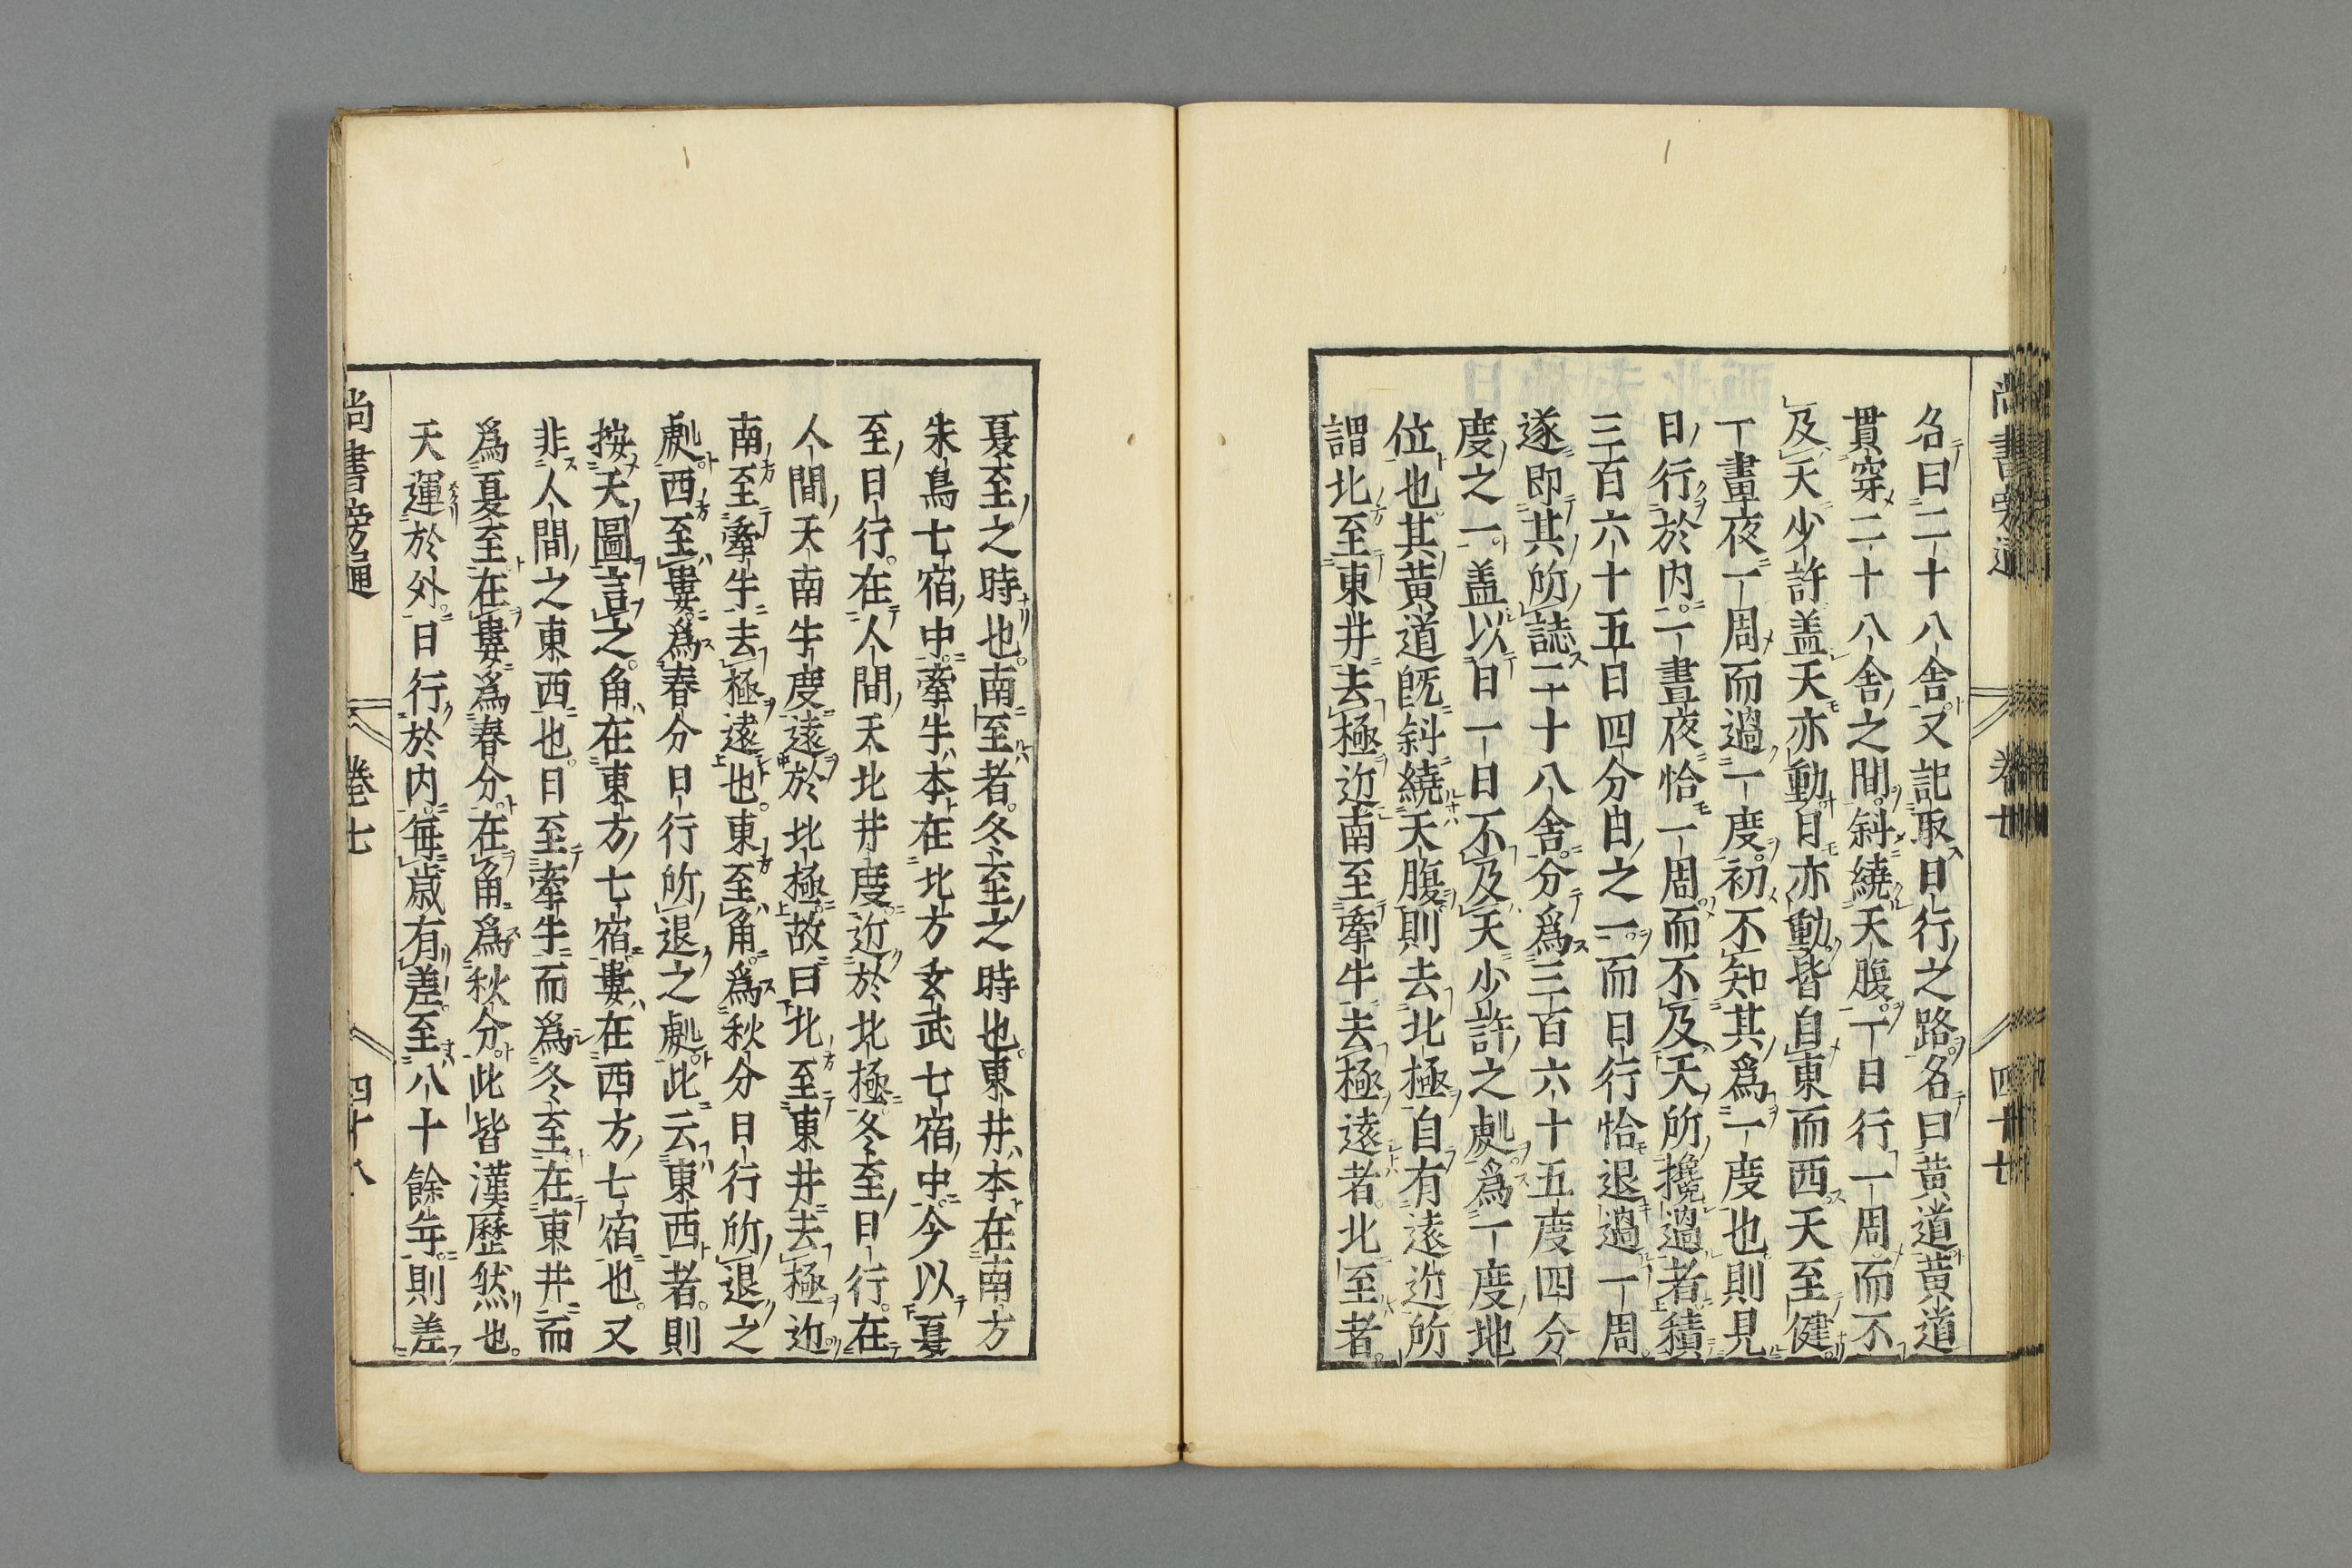 名曰二十八舎又記取日行之路名曰黄道黄道
貫穿二十八舎之間斜繞天腹一日行一周而不
及天少許盖天亦動日亦動皆自東而西天至健
一晝夜一周而過一度初不知其爲一度也則見
日行於内一晝夜恰一周而不及天所攙過者積
三百六十五日四分日之一而日行恰退過一周
遂即其所誌二十八舎分爲三百六十五度四分
度之一盖以日一日不及天少許之處爲一度地
位也其黄道既斜繞天腹則去北極自有遠近所
謂北至東井去極近南至牽牛去極遠者北至者
夏至之時也南至者冬至之時也東井本在南方
朱鳥七宿中牽牛本在北方玄武七宿中今以夏
至日行在人間天北井度近於北極冬至日行在
人間天南牛度遠於北極故曰北至東井去極近
南至牽牛去極遠也東至角爲秋分日行所退之
處西至婁爲春分日行所退之處此云東西者則
按天圖言之角在東方七宿婁在西方七宿也又
非人間之東西也日至牽牛而爲冬至在東井而
爲夏至在婁爲春分在角爲秋分此皆漢歷然也
天運於外日行於内每歳有差至八十餘年則差
尚書旁通 卷七 四十八